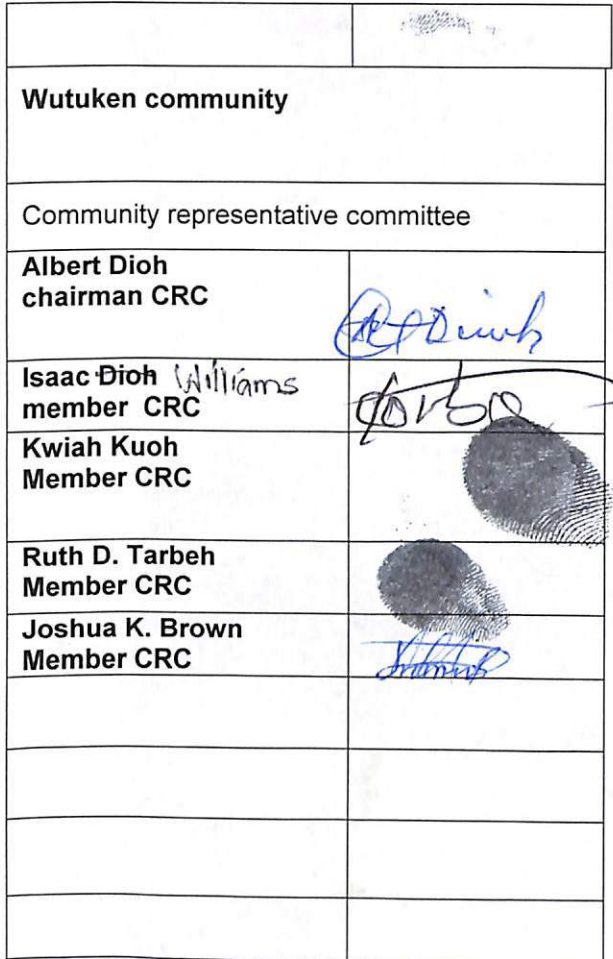 Wutuken community
Community representative committee
Albert Dioh
chairman CRC
Isaac Dioh Williams
member CRC
Kwiah Kuoh
Member CRC
Ruth D. Tarbeh
Member CRC
Joshua K. Brown
Member CRC